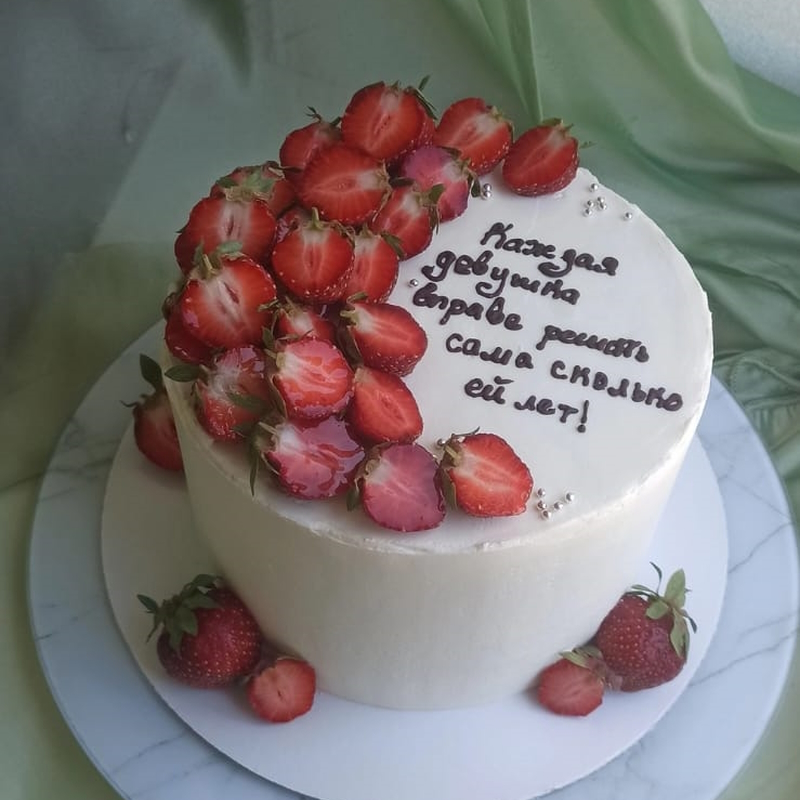 Каждая
девушка
вправе решать
сама сколько
ей лет!